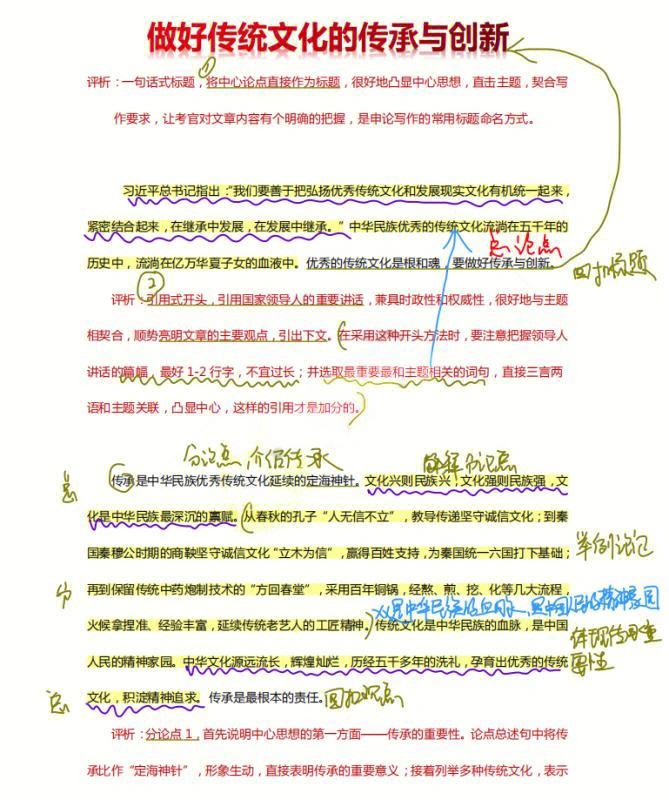 做好传统文化的传承与创新
①
评析：一句话式标题，将中心论点直接作为标题，很好地凸显中心思想，直击主题，契合写
作要求，让考官对文章内容有个明确的把握，是申论写作的常用标题命名方式。
习近平总书记指出：“我们要善于把弘扬优秀传统文化和发展现实文化有机统一起来，
紧密结合起来，在继承中发展，在发展中继承。”中华民族优秀的传统文化流淌在五千年的
总论点
历史中，流淌在亿万华夏子女的血液中。优秀的传统文化是根和魂，要做好传承与创新。
回扣标题
②
评析：引用式开头，引用国家领导人的重要讲话，兼具时政性和权威性，很好地与主题
相契合，顺势亮明文章的主要观点，引出下文。在采用这种开头方法时，要注意把握领导人
讲话的篇幅，最好 1-2 行字，不宜过长；并选取最重要最和主题相关的词句，直接三言两
语和主题关联，凸显中心，这样的引用才是加分的。
分论点，介绍传承
解释分论点
总
传承是中华民族优秀传统文化延续的定海神针。文化兴则民族兴，文化强则民族强，文
化是中华民族最深沉的禀赋。从春秋的孔子“人无信不立”，教导传递坚守诚信文化；到秦
国秦穆公时期的商鞅坚守诚信文化“立木为信”，赢得百姓支持，为秦国统一六国打下基础；
举例论证
分
再到保留传统中药炮制技术的“方回春堂”，采用百年铜锅，经熬、煎、挖、化等几大流程，
xx是中华民族的血脉，是中国人民的精神家园
火候拿捏准、经验丰富，延续传统老艺人的工匠精神，传统文化是中华民族的血脉，是中国
体现传承重
要性
人民的精神家园。中华文化源远流长，辉煌灿烂，历经五千多年的洗礼，孕育出优秀的传统
总
文化，积淀精神追求。传承是最根本的责任。
回扣观点
评析：分论点 1，首先说明中心思想的第一方面——传承的重要性。论点总述句中将传
承比作“定海神针”，形象生动，直接表明传承的重要意义；接着列举多种传统文化，表示